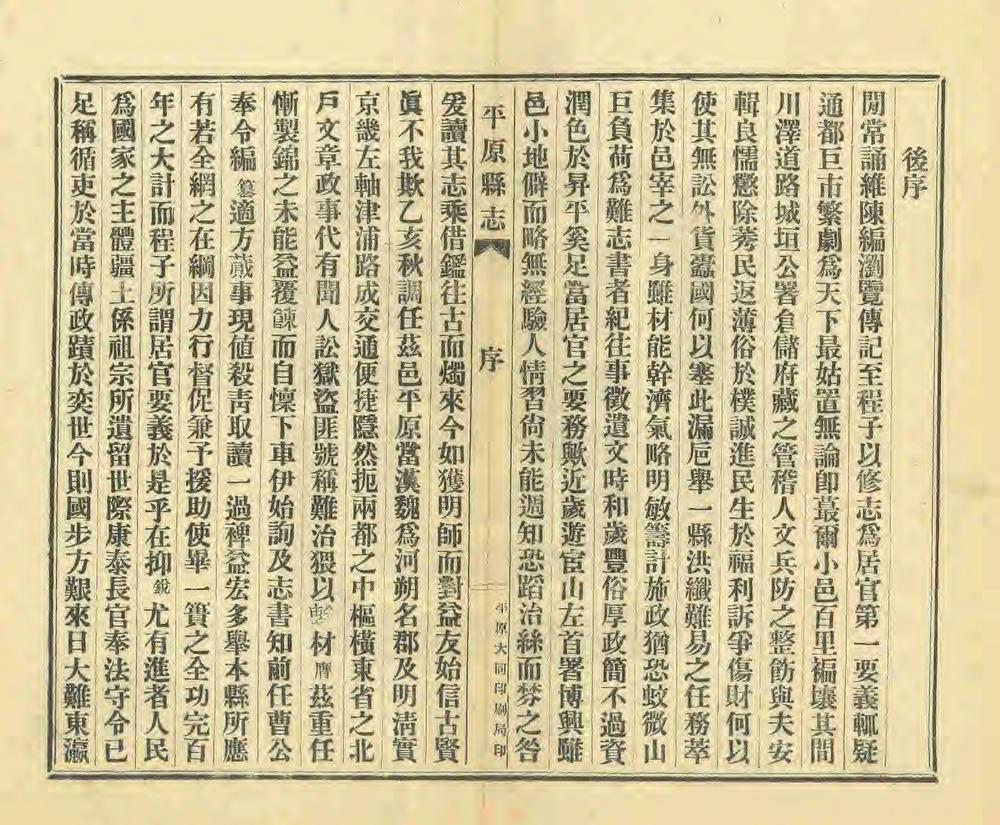 後序
閒常誦維陳編瀏覽傳記至程子以修志爲居官第一要義輒疑
通都巨市繁劇爲天下最姑置無論即蕞爾小邑百里褊壤其間
川澤道路城垣公署倉儲府藏之管稽人文兵防之整飭與夫安
輯良懦懲除莠民返薄俗於樸誠進民生於福利訴爭傷財何以
使其無訟外貨蠹國何以塞此漏巵舉一縣洪纖難易之任務萃
集於邑宰之一身雖材能幹濟氣略明敏籌計施政猶恐蚊微山
巨負荷爲難志書者紀往事徵遺文時和歲豐俗厚政簡不過資
潤色於昇平奚足當居官之要務歟近歲遊宦山左首署博興雖
邑小地僻而略無經驗人情習尙未能週知恐蹈治絲而棼之咎
平原縣志 序 平原大同印刷局印
爰讀其志乘借鑑往古而燭來今如獲明師而對益友始信古賢
眞不我欺乙亥秋調任茲邑平原當漢魏爲河朔名郡及明淸實
京畿左軸津浦路成交通便捷隱然扼兩都之中樞橫東省之北
戶文章政事代有聞人訟獄盜匪號稱難治猥以 材膺茲重任
慚製錦之未能益覆餗而自懍下車伊始詢及志書知前任曹公
奉令編纂適方蕆事現値殺靑取讀一過裨益宏多舉本縣所應
有若全網之在綱因力行督促兼予援助使畢一簣之全功完百
年之大計而程子所謂居官要義於是乎在抑銳尤有進者人民
爲國家之主體疆土係祖宗所遺留世際康泰長官奉法守令已
足稱循吏於當時傳政蹟於奕世今則國步方艱來日大難東瀛